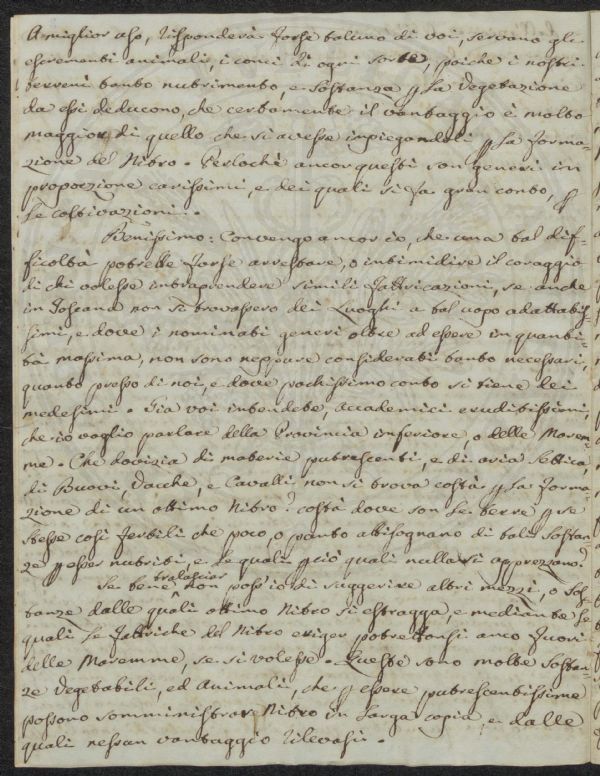 A miglior uso, risponderà forse taluno di voi, servano gli
escrementi animali, i conci di ogni sorte, poiche i nostri
terreni tanto nutrimento, e sostanza p la Vegetazione
da essi deducono, che certamente il vantaggio è molto
maggior di quello che si avesse inpiegandoli p la forma-
zione del Nitro. Perlochè ancor questi son generi in
proporzione carissimi, e dei quali si fa gran conto, p
le coltivazioni.
Benissimo: Convengo ancor io, che una tal dif-
ficoltà potrebbe forse arrestare, o intimidire il coraggio
di chi volesse intraprendere simili fabbricazioni, se anche
in Toscana non si trovassero dei Luoghi a tal uopo adattabis-
simi, e dove i nominati generi oltre ad essere in quanti-
tà massima, non sono neppure considerati tanto necessari,
quanto presso di noi, e dove pochissimo conto si tiene dei
medesimi. Gia voi intendete, Accademici eruditissimi,
che io voglio parlare della Provincia inferiore, o delle Marem-
me. Che dovizia di materie putrescenti, e di aria settica
di Buovi, Vacche, e Cavalli non si trova costà p la forma-
zione di un ottimo Nitro? costà dove son le terre p se
stesse così fertili che poco, o punto abbisognano di tali sostan-
ze p esser nutriti, e le quali p ciò quasi nulla si apprezzano?
Se bene tralasciar non poss'io di suggerire altri mezzi, o sos-
tanze dalle quali ottimo Nitro si estragga, e mediante le
quali le fabbriche del Nitro eriger potrebbonsi anco fuori
delle Maremme, se si volesse. Queste sono molte sostan-
ze Vegetabili, ed Animali, che p essere putrescentissime
possono somministrar Nitro in larga copia, e dalle
quali nessun vantaggio rilevasi.